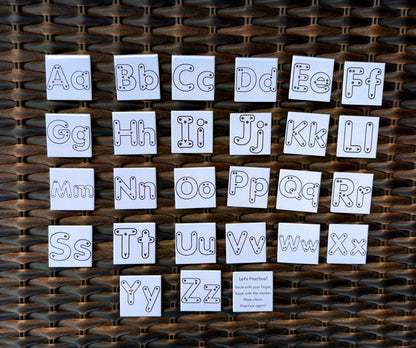 Aa Bb Cc Dd Ee Ff
Gg Hh Ii Jj Kk Ll
Mm Nn Oo Pp Qq Rr
Ss Tt Uu Vv Ww Xx
Yy Zz
Let's Practice!
Trace with your finger.
Trace with the marker.
Wipe clean.
Practice again!